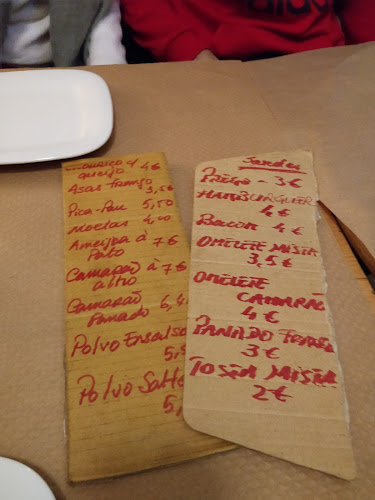 queijo 4€
Asas frango
3,5€
Pica-Pau 5,50
Moelas 4,00
Ameijoa à
Pato 7€
Camarão à 7€
alho
Camarão 6,4
Panado
Polvo Ensalsa
5,5
Polvo Salte
5,
PREGO - 3€
HAMBURGUER
4€
Bacon 4€
OMELETE MISTA
3,5€
OMELETE
CAMARÃO
4€
PANADO
3€
TOSTA MISTA
2€